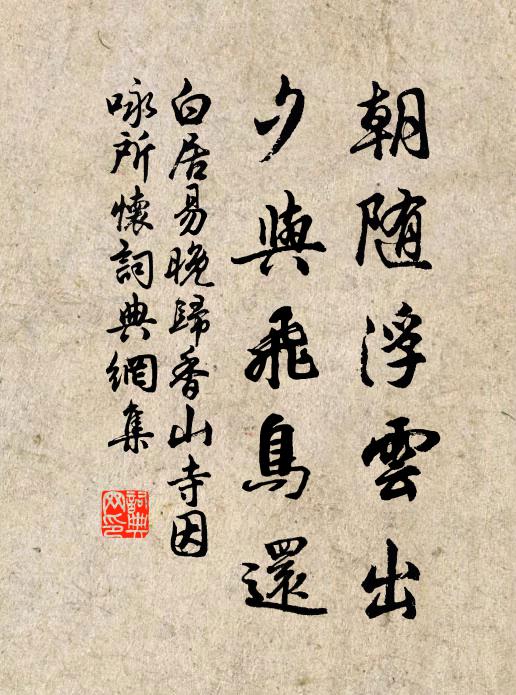 朝随浮雲出
夕與飛鳥還
白居易晚歸香山寺因
咏所懷詞典網集
詞典
网印